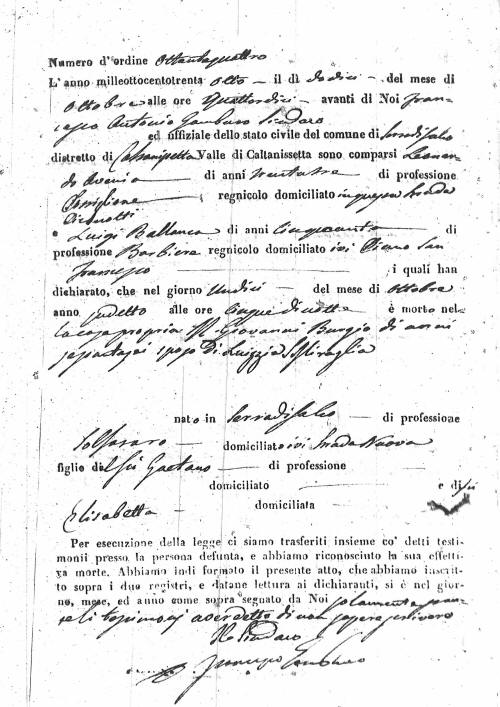 Numero d'ordine Ottantaquattro
L'anno milleottocentotrenta otto — il dì dodici — del mese di
Ottobre alle ore Quattordici — avanti di Noi Fran-
cesco Antonio Sindaco
ed uffiziale dello stato civile del comune di Serradifalco
distretto di Caltanissetta Valle di Caltanissetta sono comparsi Leonar-
do — di anni trentatre — di professione
— regnicolo domiciliato in questa strada
e Luigi Ballanca di anni Cinquanta — di
professione Barbiere regnicolo domiciliato ivi Piano San
Francesco — i quali han
dichiarato, che nel giorno Undici — del mese di Ottobre
anno sudetto alle ore Cinque di notte è morto nel-
la casa propria Giovanni Burgio di anni
sessantasei sposo di Luigia
nato in Serradifalco — di professione
Solfararo — domiciliato ivi strada Nuova
figlio del fù Gaetano — di professione
domiciliato — e di fù
Elisabetta — domiciliata —
Per esecuzione della legge ci siamo trasferiti insieme co' detti testi-
monii presso la persona defunta, e abbiamo riconosciuto la sua effetti-
va morte. Abbiamo indi formato il presente atto, che abbiamo inscrit-
to sopra i due registri, e datane lettura ai dichiaranti, si è nel gior-
no, mese, ed anno come sopra segnato da Noi solamente
avendo detto di non sapere scrivere
Il Sindaco
Francesco